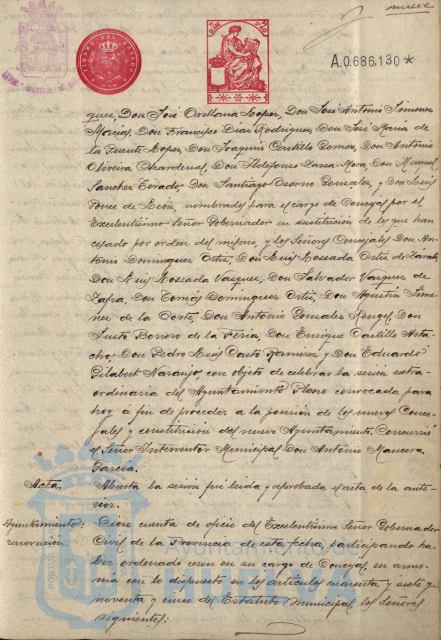 nueve
A.0.686.130*
TIMBRE DEL ESTADO
quez, Don José Orellana Lopez, Don José Antonio Jimenez
Macias, Don Francisco Diaz Rodriguez, Don José Maria de
la Puente Lopez, Don Joaquin Castillo Gomez, Don Antonio
Oliveira Don Ildefonso Lara Mora, Don Manuel
Sanchez Don Santiago Osorno Gonzalez, y Don Luis
Ponce de León, nombrados para el cargo de Concejal por el
Excelentisimo Señor Gobernador en sustitución de los que han
cesado por orden del mismo, y los Señores Concejales Don An-
tonio Dominguez Ortiz, Don Luis Lossada Ortiz de Zarate,
Don Luis Lossada Vazquez, Don Salvador Vazquez de
Zafra, Don Tomás Dominguez Ortiz, Don Agustin Jime-
nez de la Corte, Don Antonio Gonzalez Rengel, Don
Justo Borrero de la Feria, Don Enrique Castillo
Don Pedro Luis Casto Ramirez y Don Eduardo
Gilabert Naranjo, con objeto de celebrar la sesión extra-
ordinaria del Ayuntamiento Pleno convocada para
hoy á fin de proceder a la posesión de los nuevos Conce-
jales y constitución del nuevo Ayuntamiento. Concurrió
el Señor Interventor Municipal Don Antonio Mancera
Garcia.
Acta. Abierta la sesión fué leida y aprobada el acta de la ante-
rior.
Ayuntamiento: Diose cuenta de oficio del Excelentisimo Señor Gobernador
renovación. Civil de la Provincia de esta fecha participando ha-
ber ordenado cesen en su cargo de Concejal, en armo-
nia con lo dispuesto en los articulos cuarenta y siete y
noventa y cinco del Estatuto Municipal, los señores
siguientes:
Ayuntamiento de
HUELVA